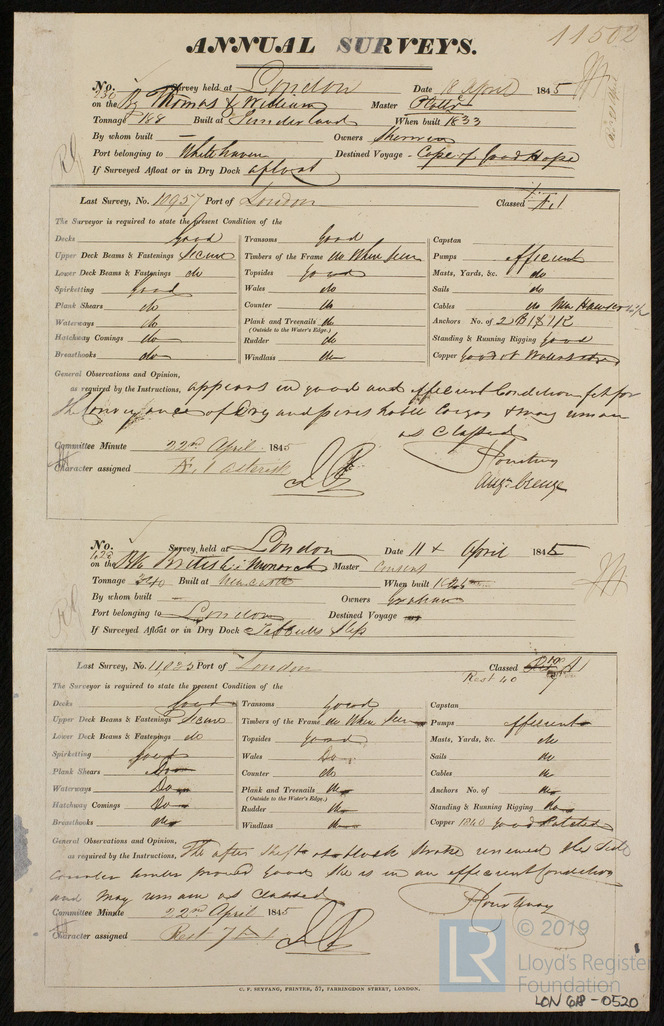 11502
ANNUAL SURVEYS.
No. 430 Survey held at London Date 18 April 1845
on the Bg Thomas & William Master
Tonnage 188 Built at Sunderland When built 1833
By whom built — Owners Sherwen
Port belonging to Whitehaven Destined Voyage - Cape of Good Hope
If Surveyed Afloat or in Dry Dock afloat
Last Survey, No. 10957 Port of London Classed Æ 1
The Surveyor is required to state the present Condition of the
Decks Good Transoms Good Capstan
Upper Deck Beams & Fastenings Secure Timbers of the Frame do When Seen Pumps efficient
Lower Deck Beams & Fastenings do Topsides good Masts, Yards, &c. do
Spirketting good Wales do Sails do
Plank Shears do Counter do Cables do
Waterways do Plank and Treenails do Anchors No. of 2 B 1 S 1 K
(Outside to the Water's Edge.)
Hatchway Comings do Rudder do Standing & Running Rigging good
Breasthooks do Windlass do Copper good
General Observations and Opinion,
as required by the Instructions, appears in good and efficient Condition fit for
the Conveyance of Dry and perishable Cargos & may remain
as Classed
Committee Minute 22nd April 1845
Character assigned Æ 1 asterisk
Augn. Creuze
No. 422 Survey held at London Date 11th April 1845
on the Bk British Monarch Master
Tonnage 340 Built at Newcastle When built
By whom built — Owners Graham
Port belonging to London Destined Voyage
If Surveyed Afloat or in Dry Dock Tebbutts Slip
Last Survey, No. 11,023 Port of London Classed
Rest 40
The Surveyor is required to state the present Condition of the
Decks good Transoms good Capstan
Upper Deck Beams & Fastenings Secure Timbers of the Frame do When Seen Pumps efficient
Lower Deck Beams & Fastenings do Topsides good Masts, Yards, &c. do
Spirketting good Wales Do Sails do
Plank Shears Do Counter do Cables do
Waterways Do Plank and Treenails do Anchors No. of do
(Outside to the Water's Edge.)
Hatchway Comings Do Rudder do Standing & Running Rigging do
Breasthooks do Windlass do Copper 1840 good
General Observations and Opinion,
as required by the Instructions, The after renewed the Side
under proved good She is in an efficient Condition
and may remain as Classed
Committee Minute 22nd April 1845
Character assigned Rest 7 A 1
C. F. SEYFANG, PRINTER, 57, FARRINGDON STREET, LONDON.
LR
© 2019
Lloyd's Register
Foundation
LON 618-0520